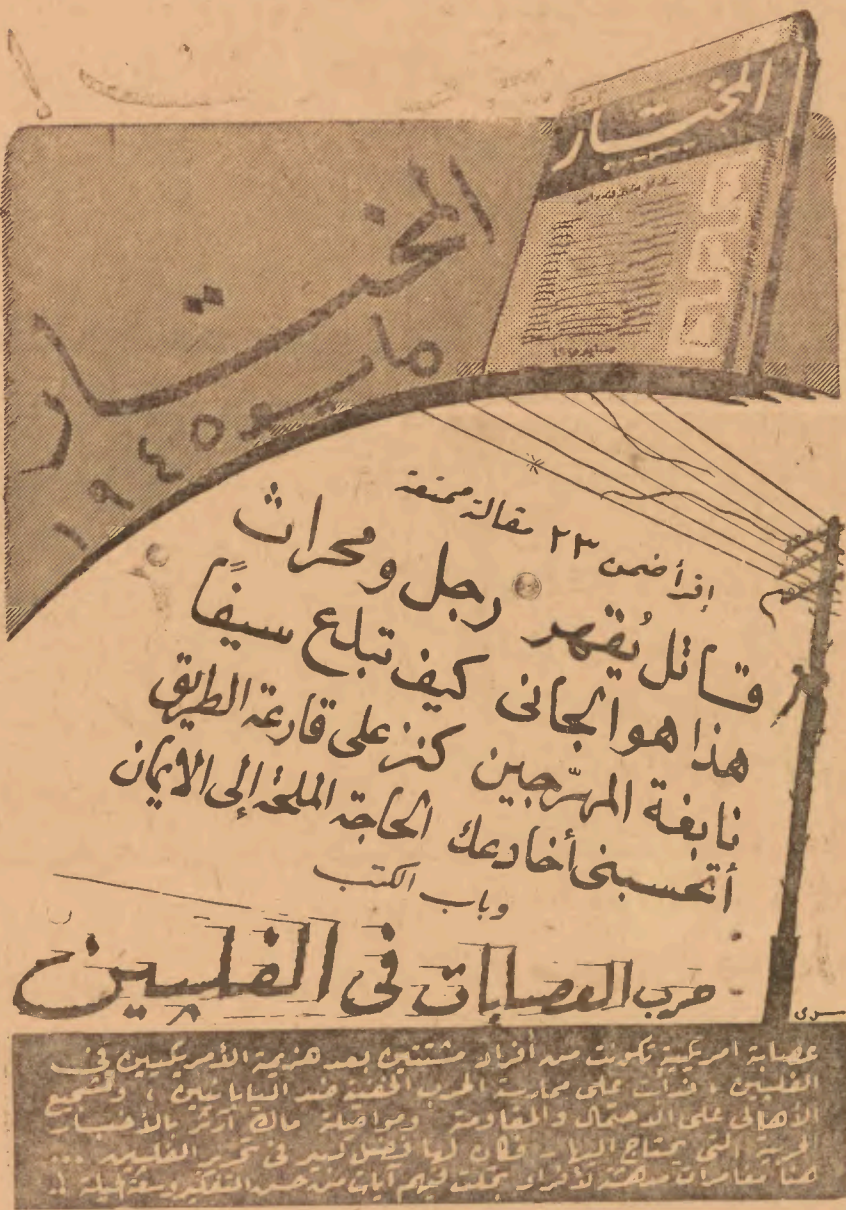 المختار
المختار
مايو ١٩٤٥
إقرأ ضمن ٢٣ مقالة ممتعة
قاتل يُقهر رجل ومحراث
هذا هو الجانى كيف تبلع سيفًا
نابغة المهرّجين كنز على قارعة الطريق
أتحسبنى أخادعك الحاجة الملحة إلى الايمان
وباب الكتب
حرب العصابات فى الفلبين
عصابة امريكية تكونت من أفراد مشتتين بعد هزيمة الأمريكيين فى
الفلبين، على ممارسة الحرب الخفية ضد اليابانيين، وتشجيع
الأهالى على الاحتمال والمقاومة ومواصلة ماك آرثر بالأخبار
الحربية التى يحتاج اليها - فكان لها فضل كبير فى تحرير الفلبين ...
هنا مغامرات مدهشة لأفراد تجلت فيهم آيات من حسن التفكير وسعة الحيلة !.